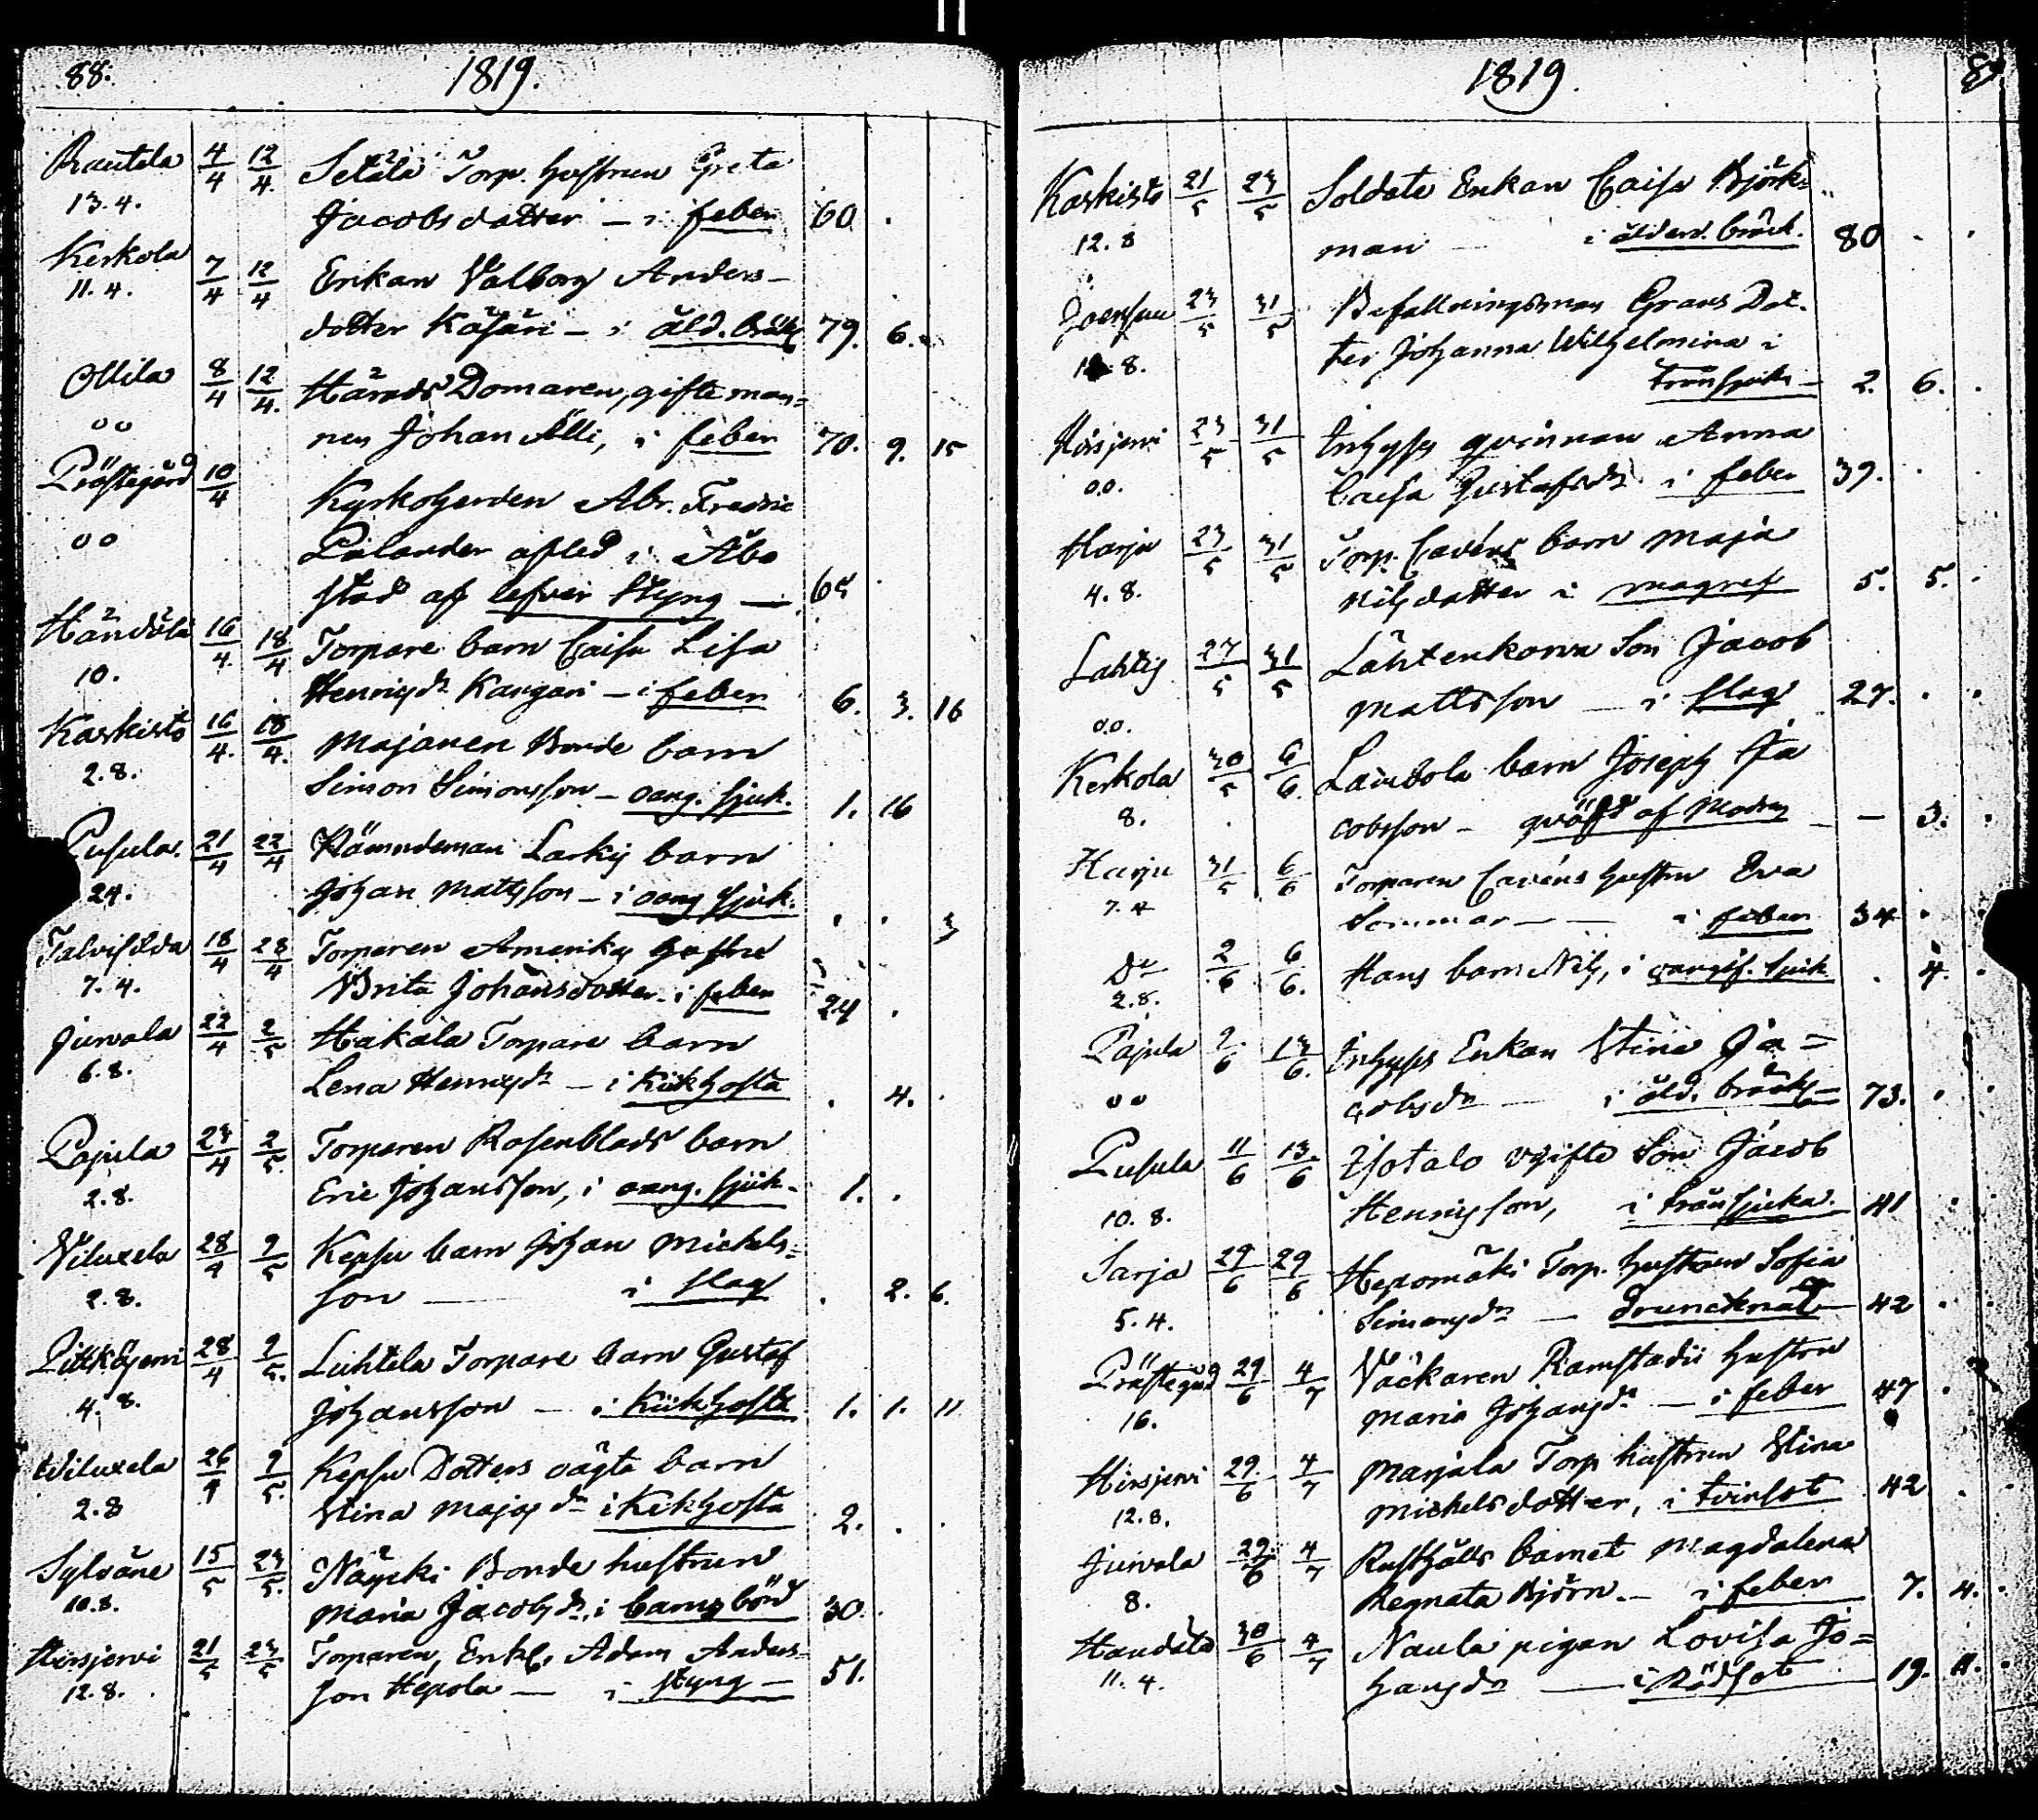 88.
1819.
Rautela 4/4 12/4. Setälä Torp. hustrun Greta
13.4. Jacobs dotter – i feber 60.
Kerkola 7/4 12/4 Enkan Valborg Anders-
11.4. dotter Käsäri – i åld. bräkl 79. 6.
Ollila 8/4 12/4. Härads Domaren, gifte man=
00 nen Johan Älli, i feber 70. 9. 15
Prästegård 10/4 Kyrkoherden Abr. Fredric
00 Palander afled i Åbo
stad af lefver styng —
Händölä 16/4. 18/4 Torpare barn Caisa Lisa
10. Henrigsdr Kangari – i feber 6. 3. 16
Karkisto 16/4. 18/4. Majanen Bonde barn
2.8. Simon Simonsson – oang. sjuk. 1. 16
Pusula. 21/4 22/4 Nämndeman Larkis barn
24. Johan Mattsson – i oang sjuk. . . 3
Talvisilda 18/4 28/4 Torparen Amerikas hustru
7.4. Brita Johansdotter i feber 24 .
Juvvala 22/4 2/5 Hakala Torpare barn
6.8. Lena Henrigsdr – i Kikhosta . 4. .
Pajula 23/4 2/5. Torparen Rosenblads barn
2.8. Eric Johansson, i oang. sjuk. 1. .
Viluxela 28/4 9/5 Kepsu barn Johan Michels=
2.8. son — i slag . 2. 6.
Pitkäjervi 28/4 9/5. Luhtela Torpare barn Gustaf
4.8. Johansson – i Kikhosta 1. 1. 11
Wiluxela 26/4 9/5. Kepsu Dotters oägta barn
2.8 Stina Majasdr i Kikhosta 2. . .
Sylväne 15/5 23/5. Näycki Bonde hustrun
10.8. Maria Jacobsdr, i barnsbörd 30.
Hirsjervi 21/5 23/5 Torparen, Enkl. Adam Anders-
12.8. son Hepola — i styng – 51.
1819.
Karkisto 21/5 23/5 Soldats Enkan Caisa Björk=
12.8 man i ålderd. bräck. 80 . .
Joensuu 23/5 31/5 Befallningsman Grans Dot-
8. ter Johanna Wilhelmina i
trånsjuka – 2. 6. .
Hirsjervi 23/5 31/5 Inhyses qvinnan Anna
00. Caisa Gustafsdr i feber 39. . .
Harju 23/5 31/5 Torp. Cavéns barn Maja
4.8. Nilsdotter i magref 5. 5. .
Lahtis 27/5 31/5 Lähtenkorva Son Jacob
00. Mattsson — i slag 27. . .
Kerkola 30/5 6/6. Laurola barn Joseph Ja
8. cobsson – qväfd af Modren – 3. .
Harju 31/5 6/6 Torparen Cavéns hustru Eva
7.4 Sommar — — i feber 34 . .
Do 2/6 6/6. Hans barn Nils, i oangif. sjuk . 4. .
2.8.
Pajula 2/6 13/6. Inhyses Enkan Stina Ja=
00 cobsdr — i åld. bräckl – 73. . .
Pusula 11/6 13/6 Isotalo ogifte Son Jacob
10.8. Henrigsson, i trånsjuka. 41 . .
Sarja 29/6 29/6 Hepomäki Torp. hustrun Sofia
5.4. Simonsdr — Druncknat – 42 . .
Prästegård 29/6 4/7 Väckaren Ramstadii hustru
16. Maria Johansdr — i feber 47 .
Hirsjervi 29/6 4/7 Marjala Torp hustrun Stina
12.8. Michelsdotter, i tvinsot 42 . .
Juvvala 29/6 4/7 Rusthålls barnet Magdalena
8. Regnata Björn. – i feber 7. 4. .
Haudela 30/6 4/7 Naula pigan Lovisa Jo=
11.4. hansdr — i Rödsot 19. 11. .